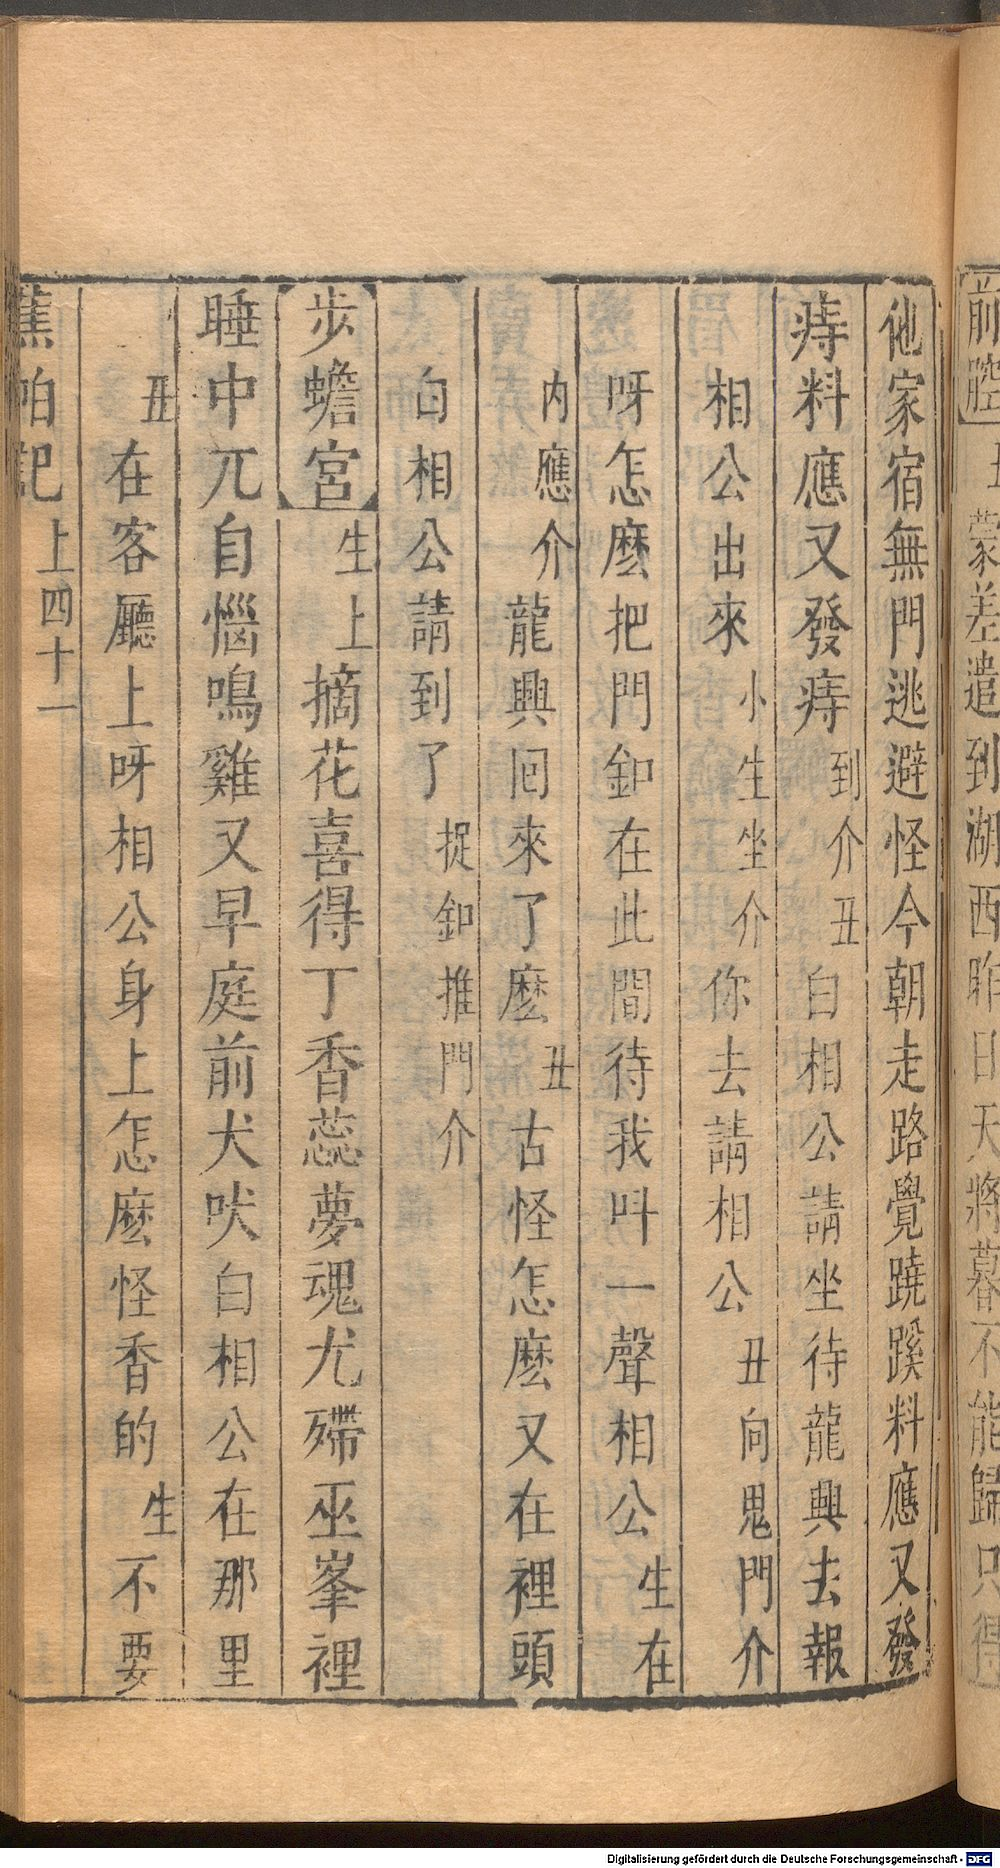 前腔 丑 蒙差遣到湖西昨日天將暮不能歸只得
他家宿無門逃避怪今朝走路覺蹺蹊料應又發
痔料應又發痔到介丑白相公請坐待龍興去報
相公出來小生坐介你去請相公丑向鬼門介
呀怎麽把門釦在此間待我呌一聲相公生在
內應介龍興回來了麽丑古怪怎麽又在裡頭
白相公請到了捉釦推門介
步蟾宮生上摘花喜得丁香蕊夢魂尤殢巫峯裡
睡中兀自惱鳴雞又早庭前犬吠白相公在那里
丑在客廳上呀相公身上怎麽怪香的生不要
蕉帕記 上四十一
Digitalisierung gefördert durch die Deutsche Forschungsgemeinschaft - DFG